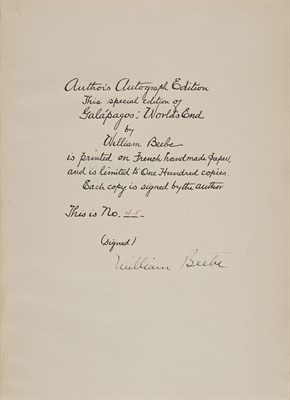 Author's Autograph Edition
This special edition of
Galápagos: World's End
by
William Beebe
is printed on French handmade paper,
and is limited to One Hundred copies.
Each copy is signed by the author
This is No. 45
(signed)
William Beebe